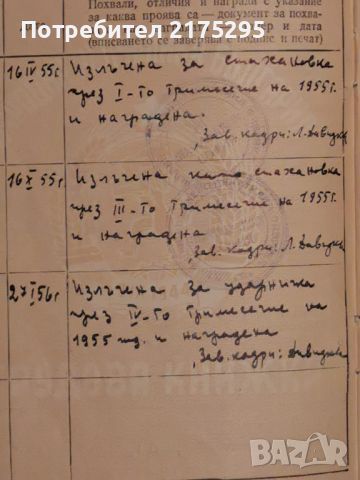 Похвали, отличия и награди с указание
за каква проява са — документ за похва-
Потребител 2175295
номер и дата
(вписването се заверява с подпис и печат)
16 IV 55 г.
Излъчена за стахановка
през I-то тримесечие на 1955 г.
и наградена.
Зав. кадри: Л. Давидк
16 X 55 г.
Излъчена като стахановка
през III-то тримесечие на 1955 г.
и наградена
Зав. кадри: Л. Давидк
27 I 56 г.
Излъчена за ударничка
през IV-то тримесечие на
1955 год. и наградена
Зав. кадри: Давидк
BAZAR
bg